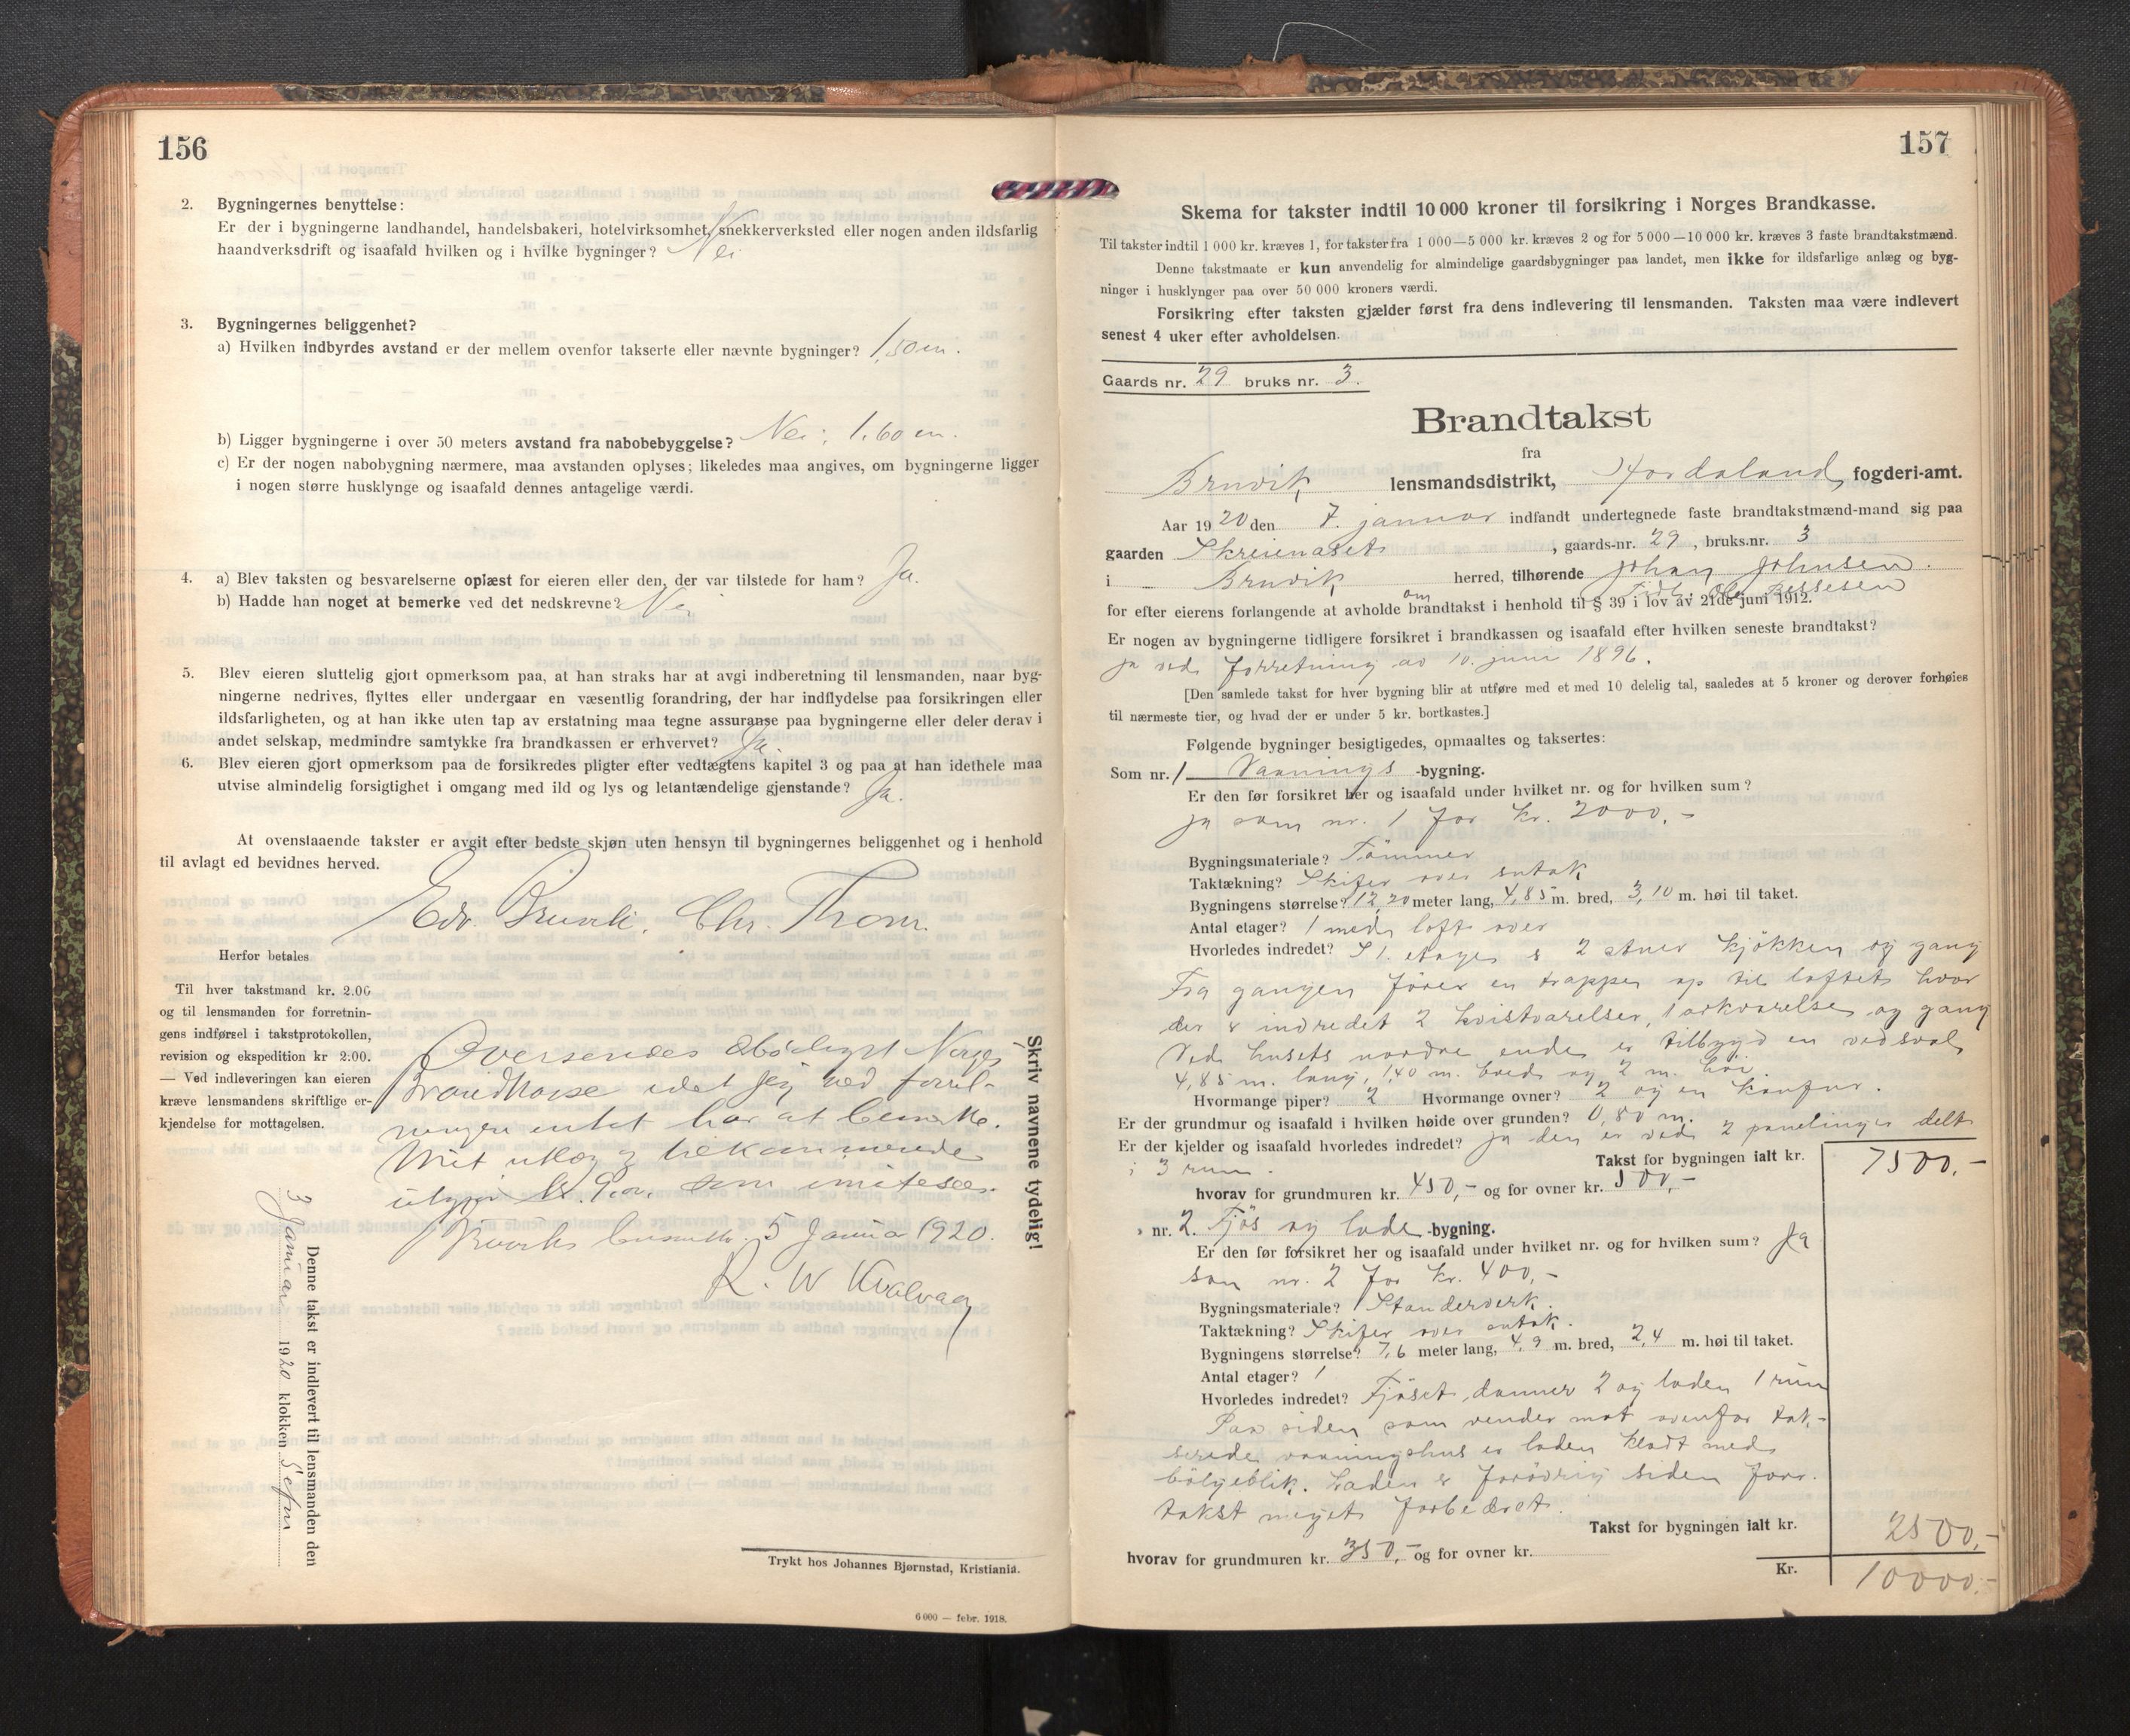 156
2. Bygningernes benyttelse:
Er der i bygningerne landhandel, handelsbakeri, hotelvirksomhet, snekkerverksted eller nogen anden ildsfarlig
haandverksdrift og isaafald hvilken og i hvilke bygninger? Nei
3. Bygningernes beliggenhet?
a) Hvilken indbyrdes avstand er der mellem ovenfor takserte eller nævnte bygninger? 1,50 m.
b) Ligger bygningerne i over 50 meters avstand fra nabobebyggelse? Nei; 1.60 m.
c) Er der nogen nabobygning nærmere, maa avstanden oplyses; likeledes maa angives, om bygningerne ligger
i nogen større husklynge og isaafald dennes antagelige værdi.
4. a) Blev taksten og besvarelserne oplæst for eieren eller den, der var tilstede for ham? Ja.
b) Hadde han noget at bemerke ved det nedskrevne? Nei
5. Blev eieren sluttelig gjort opmerksom paa, at han straks har at avgi indberetning til lensmanden, naar byg-
ningerne nedrives, flyttes eller undergaar en væsentlig forandring, der har indflydelse paa forsikringen eller
ildsfarligheten, og at han ikke uten tap av erstatning maa tegne assuranse paa bygningerne eller deler derav i
andet selskap, medmindre samtykke fra brandkassen er erhvervet? Ja.
6. Blev eieren gjort opmerksom paa de forsikredes pligter efter vedtægtens kapitel 3 og paa at han idethele maa
utvise almindelig forsigtighet i omgang med ild og lys og letantændelige gjenstande? Ja.
At ovenstaaende takster er avgit efter bedste skjøn uten hensyn til bygningernes beliggenhet og i henhold
til avlagt ed bevidnes herved.
Edv. Chr. Thom.
Herfor betales
Til hver takstmand kr. 2.00
og til lensmanden for forretnin-
gens indførsel i takstprotokollen,
revision og ekspedition kr 2.00.
— Ved indleveringen kan eieren
kræve lensmandens skriftlige er-
kjendelse for mottagelsen.
Oversendes Norges
Brandkasse idet jeg ved forret-
ningen intet har at bemerke.
Mit utlæg
som
5 Janua 1920.
R. W Kvalvaag
Skriv navnene tydelig!
Denne takst er indlevert til lensmanden den
3 Januar 1920 klokken 5 efm
Trykt hos Johannes Bjørnstad, Kristiania.
6 000 — febr. 1918.
157
Skema for takster indtil 10 000 kroner til forsikring i Norges Brandkasse.
Til takster indtil 1 000 kr. kræves 1, for takster fra 1 000—5 000 kr. kræves 2 og for 5 000—10 000 kr. kræves 3 faste brandtakstmænd.
Denne takstmaate er kun anvendelig for almindelige gaardsbygninger paa landet, men ikke for ildsfarlige anlæg og byg-
ninger i husklynger paa over 50 000 kroners værdi.
Forsikring efter taksten gjælder først fra dens indlevering til lensmanden. Taksten maa være indlevert
senest 4 uker efter avholdelsen.
Gaards nr. 29 bruks nr. 3.
Brandtakst
fra
Bruvik lensmandsdistrikt, Hordaland fogderi-amt.
Aar 1920 den 7. januar indfandt undertegnede faste brandtakstmænd-mand sig paa
gaarden Skreienaset, gaards-nr. 29, bruks.nr. 3
i Bruvik herred, tilhørende Johan Johnsen.
for efter eierens forlangende at avholde om brandtakst i henhold til § 39 i lov av 21de juni 1912.
Er nogen av bygningerne tidligere forsikret i brandkassen og isaafald efter hvilken seneste brandtakst?
ja ved forretning av 10. juni 1896.
[Den samlede takst for hver bygning blir at utføre med et med 10 delelig tal, saaledes at 5 kroner og derover forhøies
til nærmeste tier, og hvad der er under 5 kr. bortkastes.]
Følgende bygninger besigtigedes, opmaaltes og taksertes:
Som nr. 1 Vaanings -bygning.
Er den før forsikret her og isaafald under hvilket nr. og for hvilken sum?
ja som nr. 1 for kr. 2000,-
Bygningsmateriale? Tømmer
Taktækning? Skifer over sutak
Bygningens størrelse? 12,20 meter lang, 4,85 m. bred, 3,10 m. høi til taket.
Antal etager? 1 med loft over
Hvorledes indredet? I 1. etage er 2 stuer kjøkken og gang
Fra gangen fører en trappe op til loftet hvor
der er indredet 2 kvistværelser, 1 arkværelse og gang
Ved husets nordre ende er tilbygd en vedsval
4,85 m. lang, 1,40 m. bred og 2 m. høi.
Hvormange piper? 2 Hvormange ovner? 2 og en komfur.
Er der grundmur og isaafald i hvilken høide over grunden? 0,80 m.
Er der kjelder og isaafald hvorledes indredet? ja den er ved 2 panelinger delt
i 3 rum.
Takst for bygningen ialt kr. 7500,-
hvorav for grundmuren kr. 450,- og for ovner kr. 500,-
» nr. 2. Fjøs og lade -bygning.
Er den før forsikret her og isaafald under hvilket nr. og for hvilken sum? Ja
som nr. 2 for kr. 400,-
Bygningsmateriale? Standerverk.
Taktækning? Skifer over sutak.
Bygningens størrelse? 7,6 meter lang, 4,9 m. bred, 2,4 m. høi til taket.
Antal etager? 1
Hvorledes indredet? Fjøset danner 2 og laden 1 rum
Paa siden som vender mot ovenfor tak-
serede vaaningshus er laden klædt med
bølgeblik. Laden er forøvrig siden forr.
takst meget forbedret.
Takst for bygningen ialt kr. 2500,-
hvorav for grundmuren kr. 350,- og for ovner kr.
Kr. 10000,-